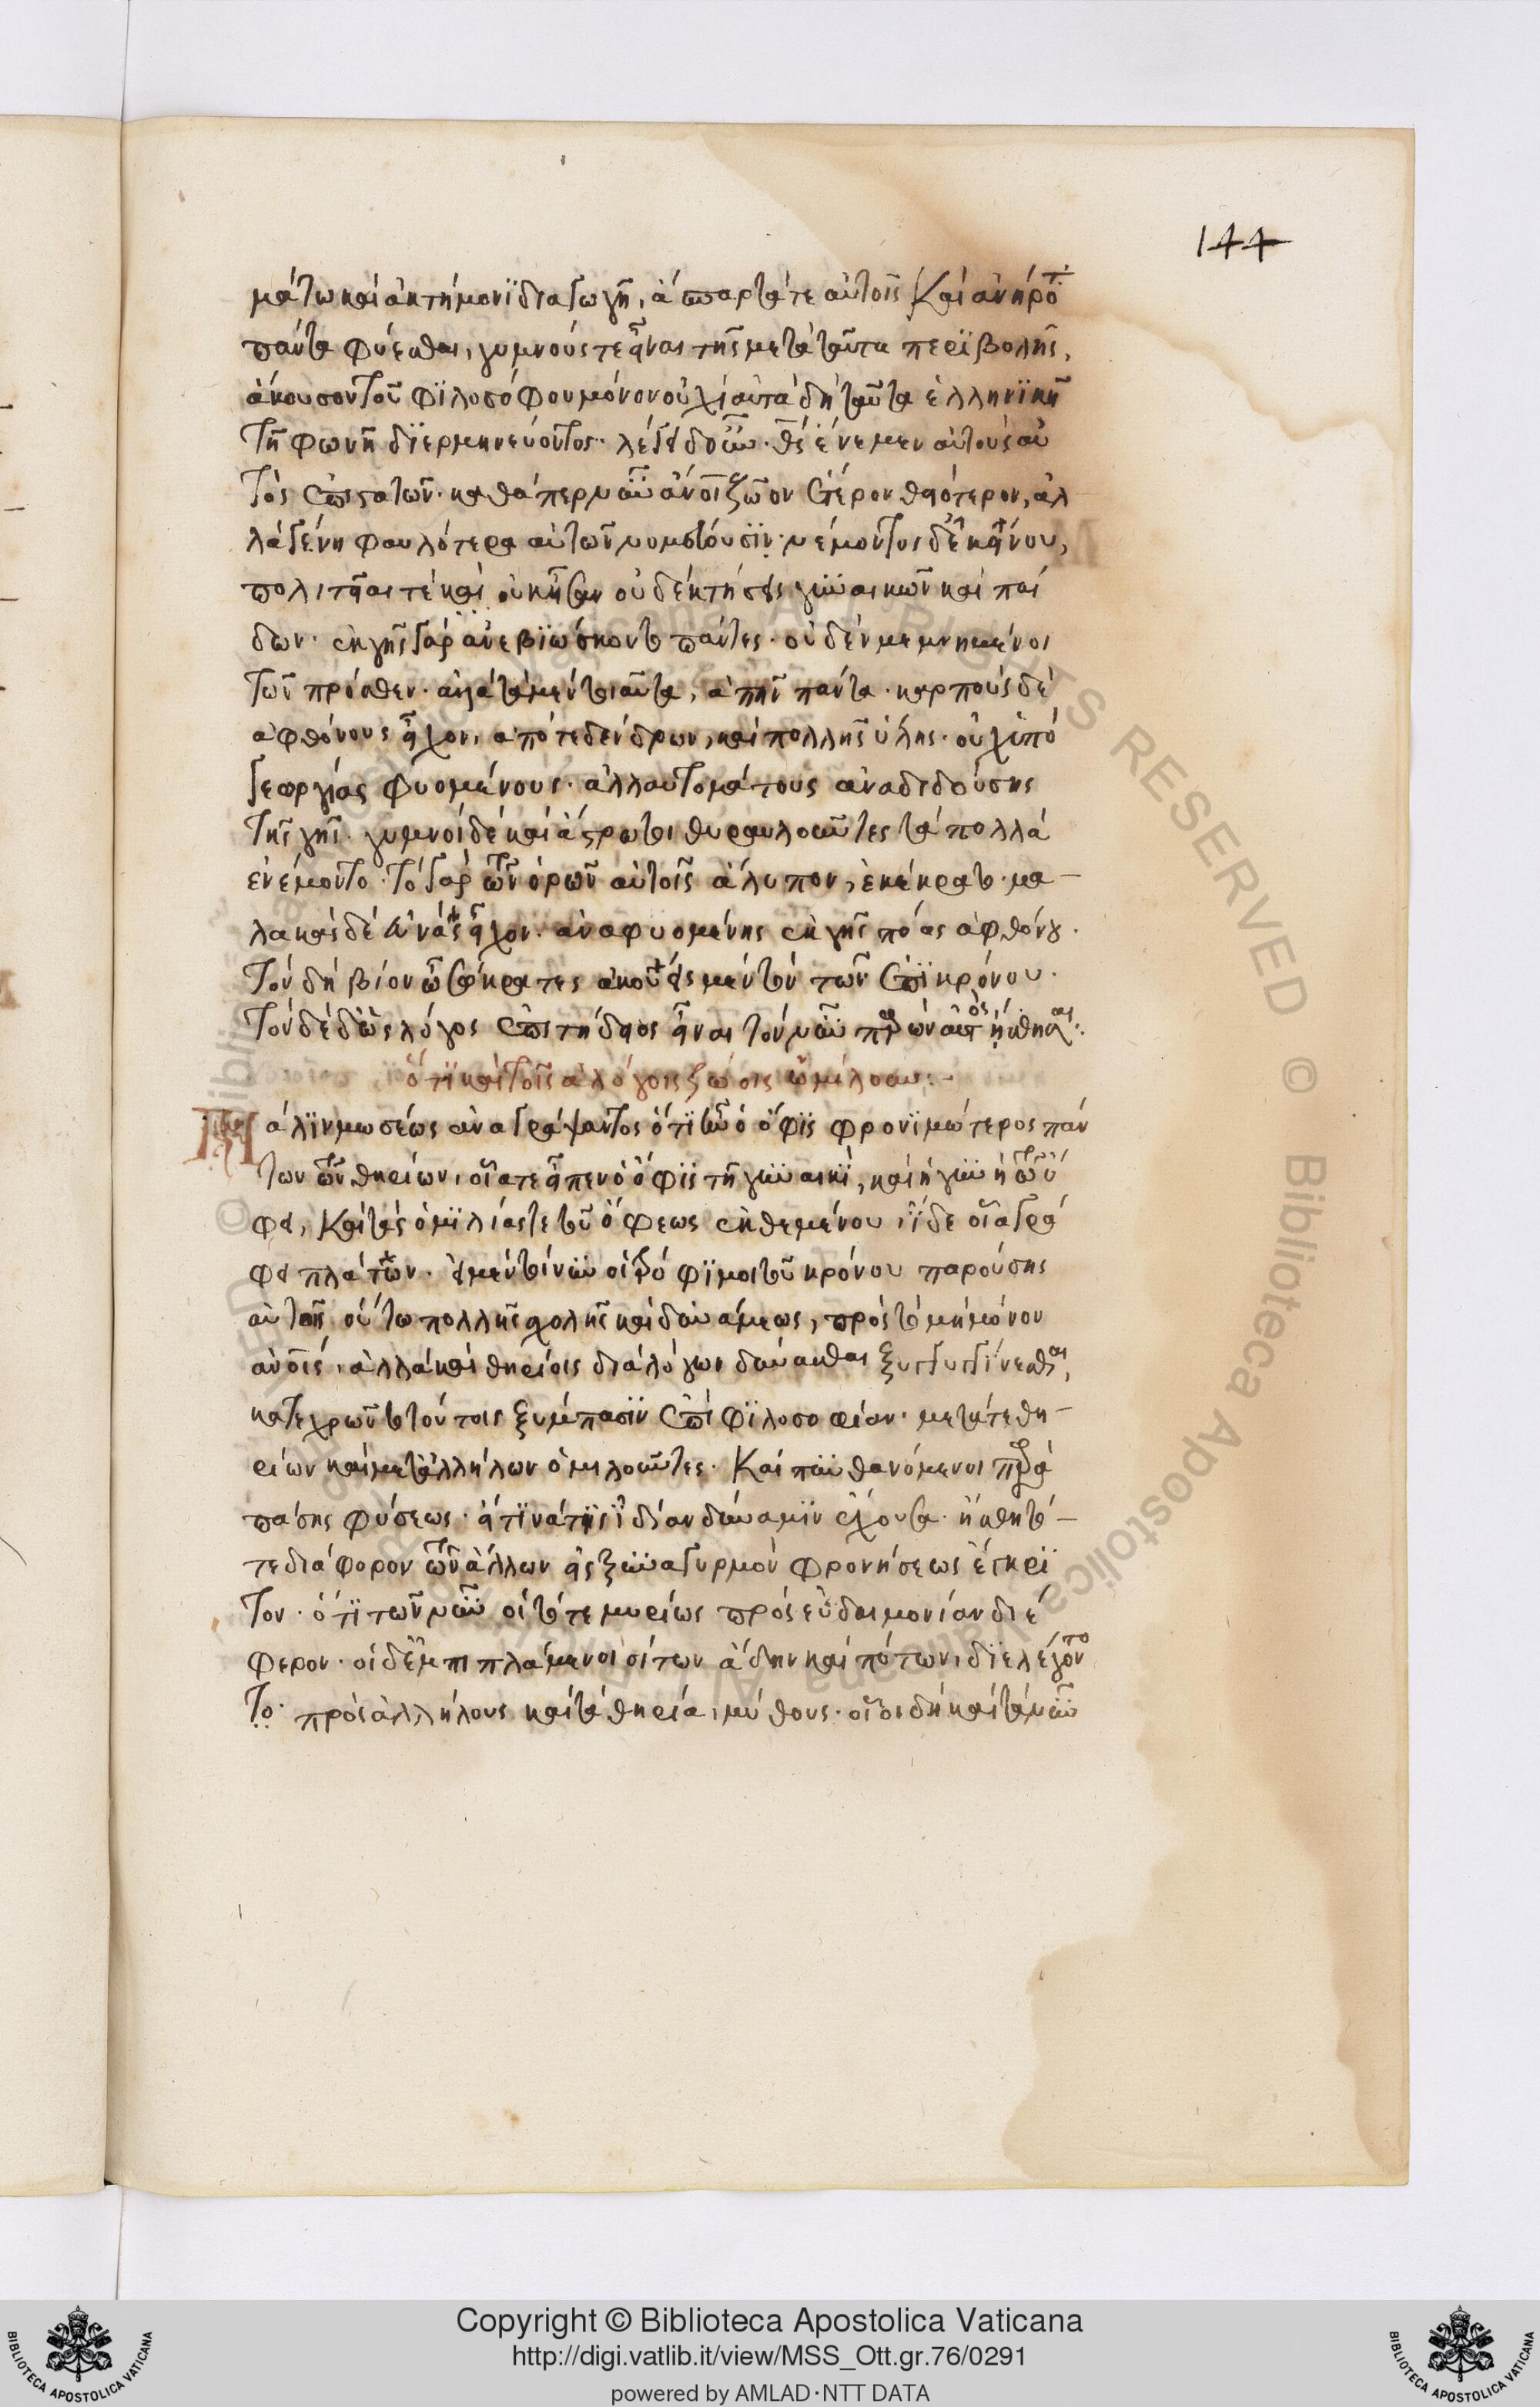 144
μάτω καὶ ἀκτήμονι διαγωγῆ, ἄσπαρτά τε αὐτοῖς καὶ ἀνήροτ
πάντα φύεσθαι, γυμνούς τε εἶναι τῆς μετὰ ταῦτα περιβολῆς,
ἄκουσον τοῦ φιλοσόφου μόνον οὐχὶ αὐτὰ δὴ ταῦτα ἑλληνικῆ
τῆ φωνῆ διερμηνεύοντος· λέγει δ οὖν· θς ἔνεμεν αὐτοὺς αὐ
τὸς ἐπιστατῶν· καθάπερ νῦν ἄνοι ζῶον ἕτερον θειότερον, ἀλ
λὰ γένη φαυλότερα αὐτῶν νομεύουσιν· νέμοντος δὲ κείνου,
πολιτεῖαι τὲ καὶ οὐκ ἦσαν οὐδὲ κτήσεις γυναικῶν καὶ παί
δων· ἐκ γῆς γὰρ ἀνεβιώσκοντο πάντες· οὐδὲν μεμνημένοι
τῶν πρόσθεν· ἀλλὰ τὰ μὲν τοιαῦτα, ἀπῆν πάντα· καρποὺς δὲ
ἀφθόνους εἶχον, ἀπό τε δένδρων, καὶ πολλῆς ὕλης· οὐχ ὑπὸ
γεωργίας φυομένους· ἀλλ αὐτομάτους ἀναδιδούσης
τῆς γῆς· γυμνοὶ δὲ καὶ ἄστρωτοι θυραυλοῦντες τὰ πολλὰ
ἐνέμοντο· τὸ γὰρ τῶν ὁρῶν αὐτοῖς ἄλυπον, ἐκέκρατο· μα-
λακὰς δὲ εὐνὰς εἶχον· ἀναφυομένης ἐκ γῆς πόας ἀφθόνου·
τὸν δὴ βίον ὦ σώκρατες ἀκούεις μὲν τὸν τῶν ἐπὶ κρόνου·
τὸν δὲ δ ὡς λόγος ἐπὶ εἶναι τὸν νῦν παρὼν αὐτὸς ἤσθησαι:
ὅτι καὶ τοῖς ἀλόγοις ζώοις ὡμίλουν:-
Πάλιν μωσέως ἀναγράψαντος ὅτι τοῦ ὁ ὄφις φρονιμώτερος πάν
των τῶν θηρίων, οἷα τε εἶπεν ὁ ὄφις τῆ γυναικί, καὶ ἡ γυνὴ τῶ ὄ
φει, καὶ τὰς ὁμιλίας τε τοῦ ὄφεως ἐκθεμένου, ἴδε οἷα γρά
φει πλάτων· εἰ μὲν τοίνυν οἱ τρόφιμοι τοῦ κρόνου παρούσης
αὐτοῖς οὕτω πολλῆς σχολῆς καὶ δυνάμεως, πρὸς τὸ μὴ μόνον
ἀνοις, ἀλλὰ καὶ θηρίοις διὰ λόγων δύνασθαι ξυγγίνεσθαι,
κατεχρῶντο τούτοις ξύμπασιν ἐπὶ φιλοσοφίαν· μετά τε θη-
ρίων καὶ μετ ἀλλήλων ὁμιλοῦντες· καὶ πυνθανόμενοι παρὰ
πάσης φύσεως· εἴ τινά τις ἰδίαν δύναμιν ἔχουσα ἤσθητο-
τε διάφορον τῶν ἄλλων εἰς ξυναγυρμὸν φρονήσεως εὔκρι
τον· ὅτι τῶν νῦν οἱ τότε μυρίως πρὸς εὐδαιμονίαν διέ
φερον· οἱ δ ἐμπιπλάμενοι σίτων ἄδην καὶ πότων, διελέγοντο
το· πρὸς ἀλλήλους καὶ τὰ θηρία, μύθους· οἷοι δὴ καὶ τὰ νῦν
Copyright © Biblioteca Apostolica Vaticana
http://digi.vatlib.it/view/MSS_Ott.gr.76/0291
powered by AMLAD·NTT DATA